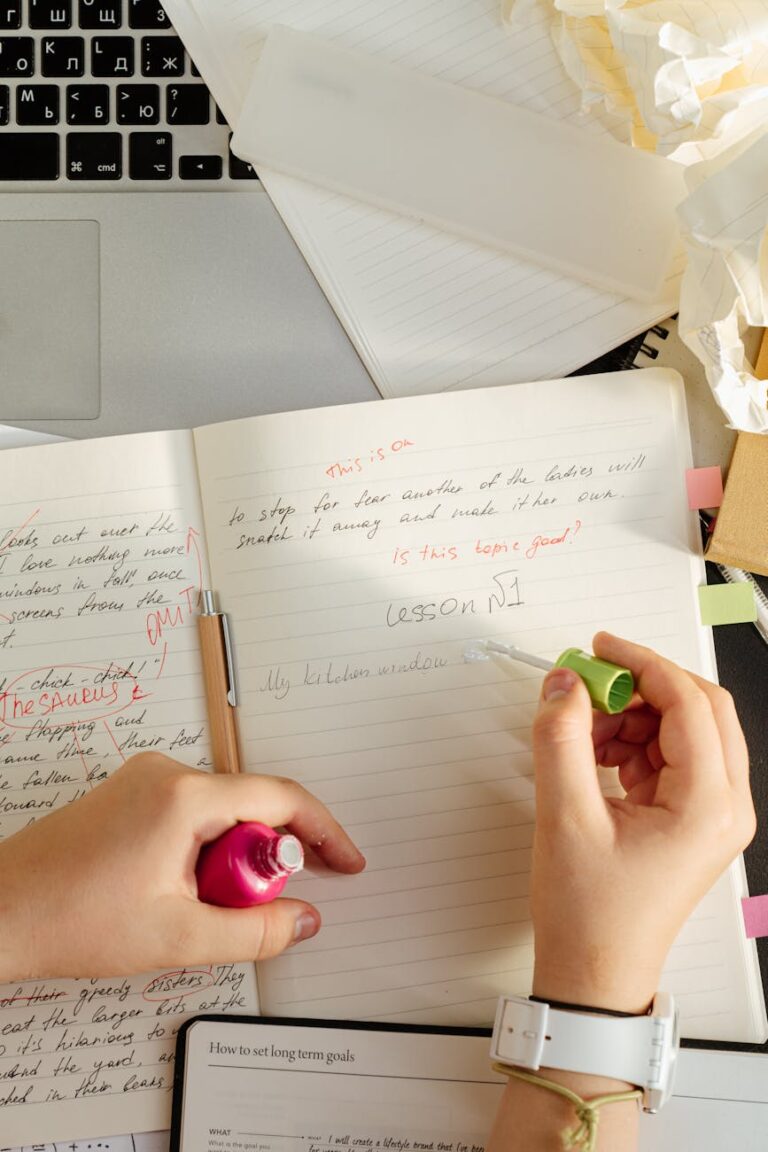 Г Ш Щ З
О K Л L Д ; Ж
M Ь < Б > Ю ?
⌘ cmd alt
This is on
to stop for fear another of the ladies will
snatch it away and make it her own.
is this topic good?
Lesson №1
My kitchen window
looks out over the
I love nothing more
windows in fall, once
screens from the
t.
OMIT
- chick - chick!"
Thesaurus
flapping and
same time, their feet
e fallen
toward
of their greedy sisters They
eat the larger bits at the
it's hilarious to
the yard, a
in their beaks,
How to set long term goals
WHAT
What is the goal you
I will create a lifestyle brand that I've been